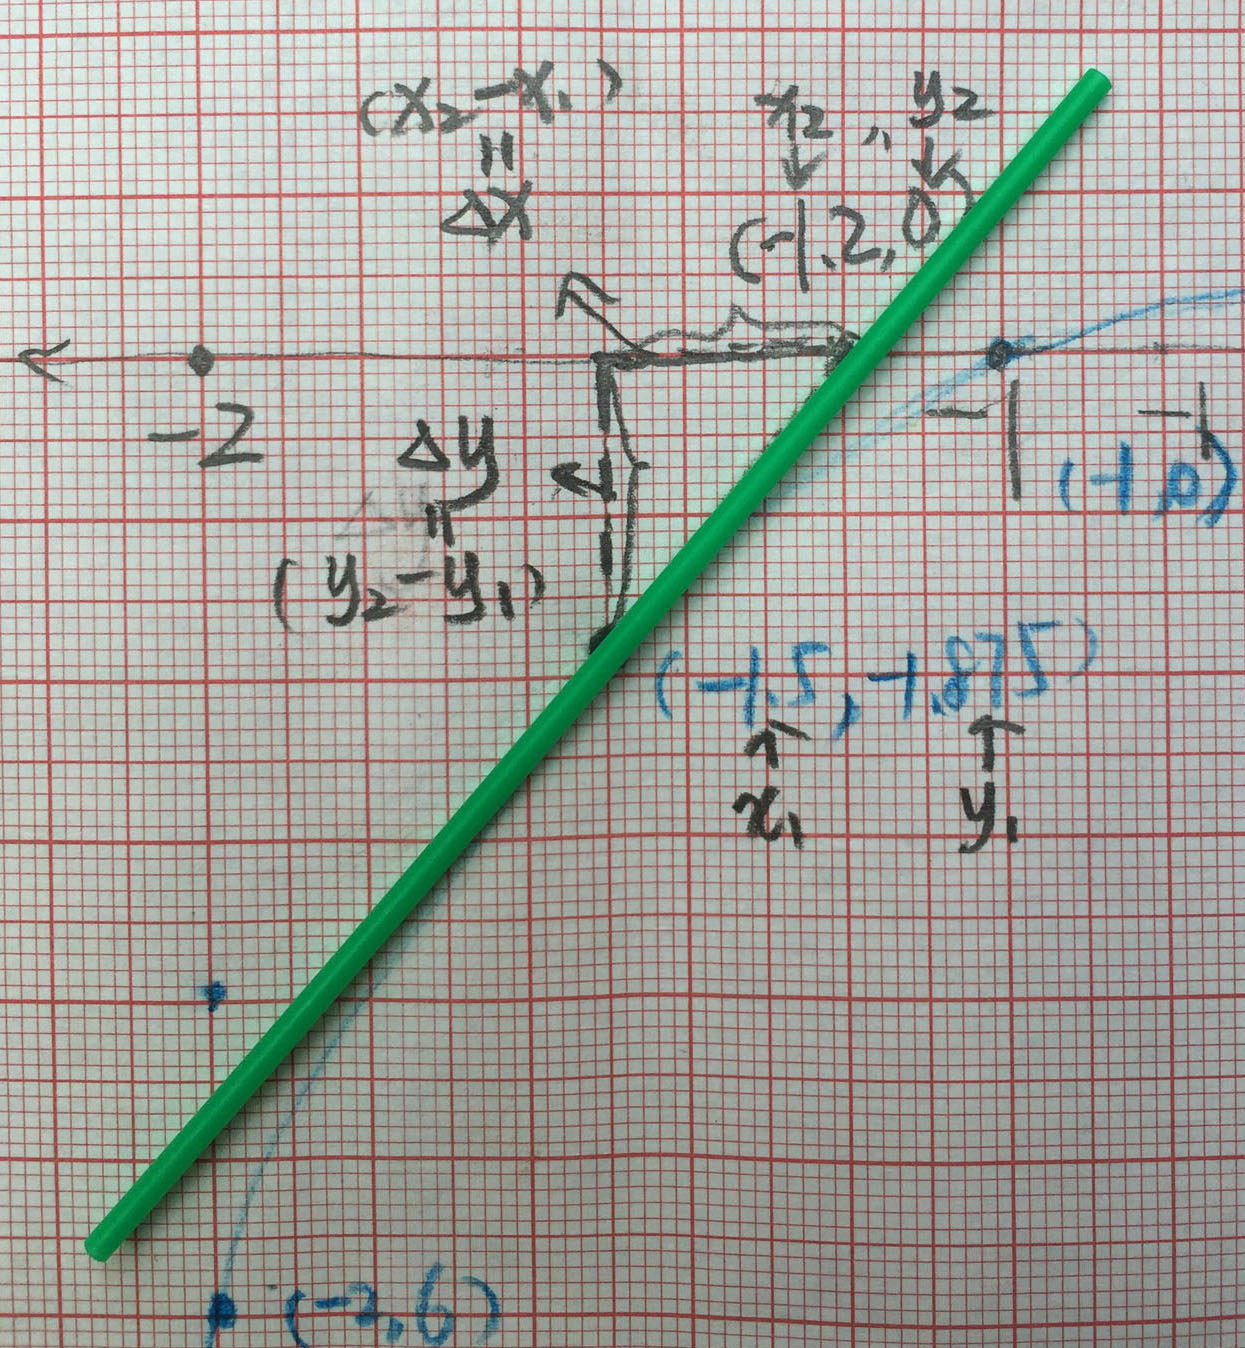 (x₂-x₁)
=
Δx
x₂, y₂
(-1.2,0)
-2
-1
-1
(-1,0)
Δy
=
(y₂-y₁)
(-1.5,-1.875)
x₁
y₁
(-2,6)